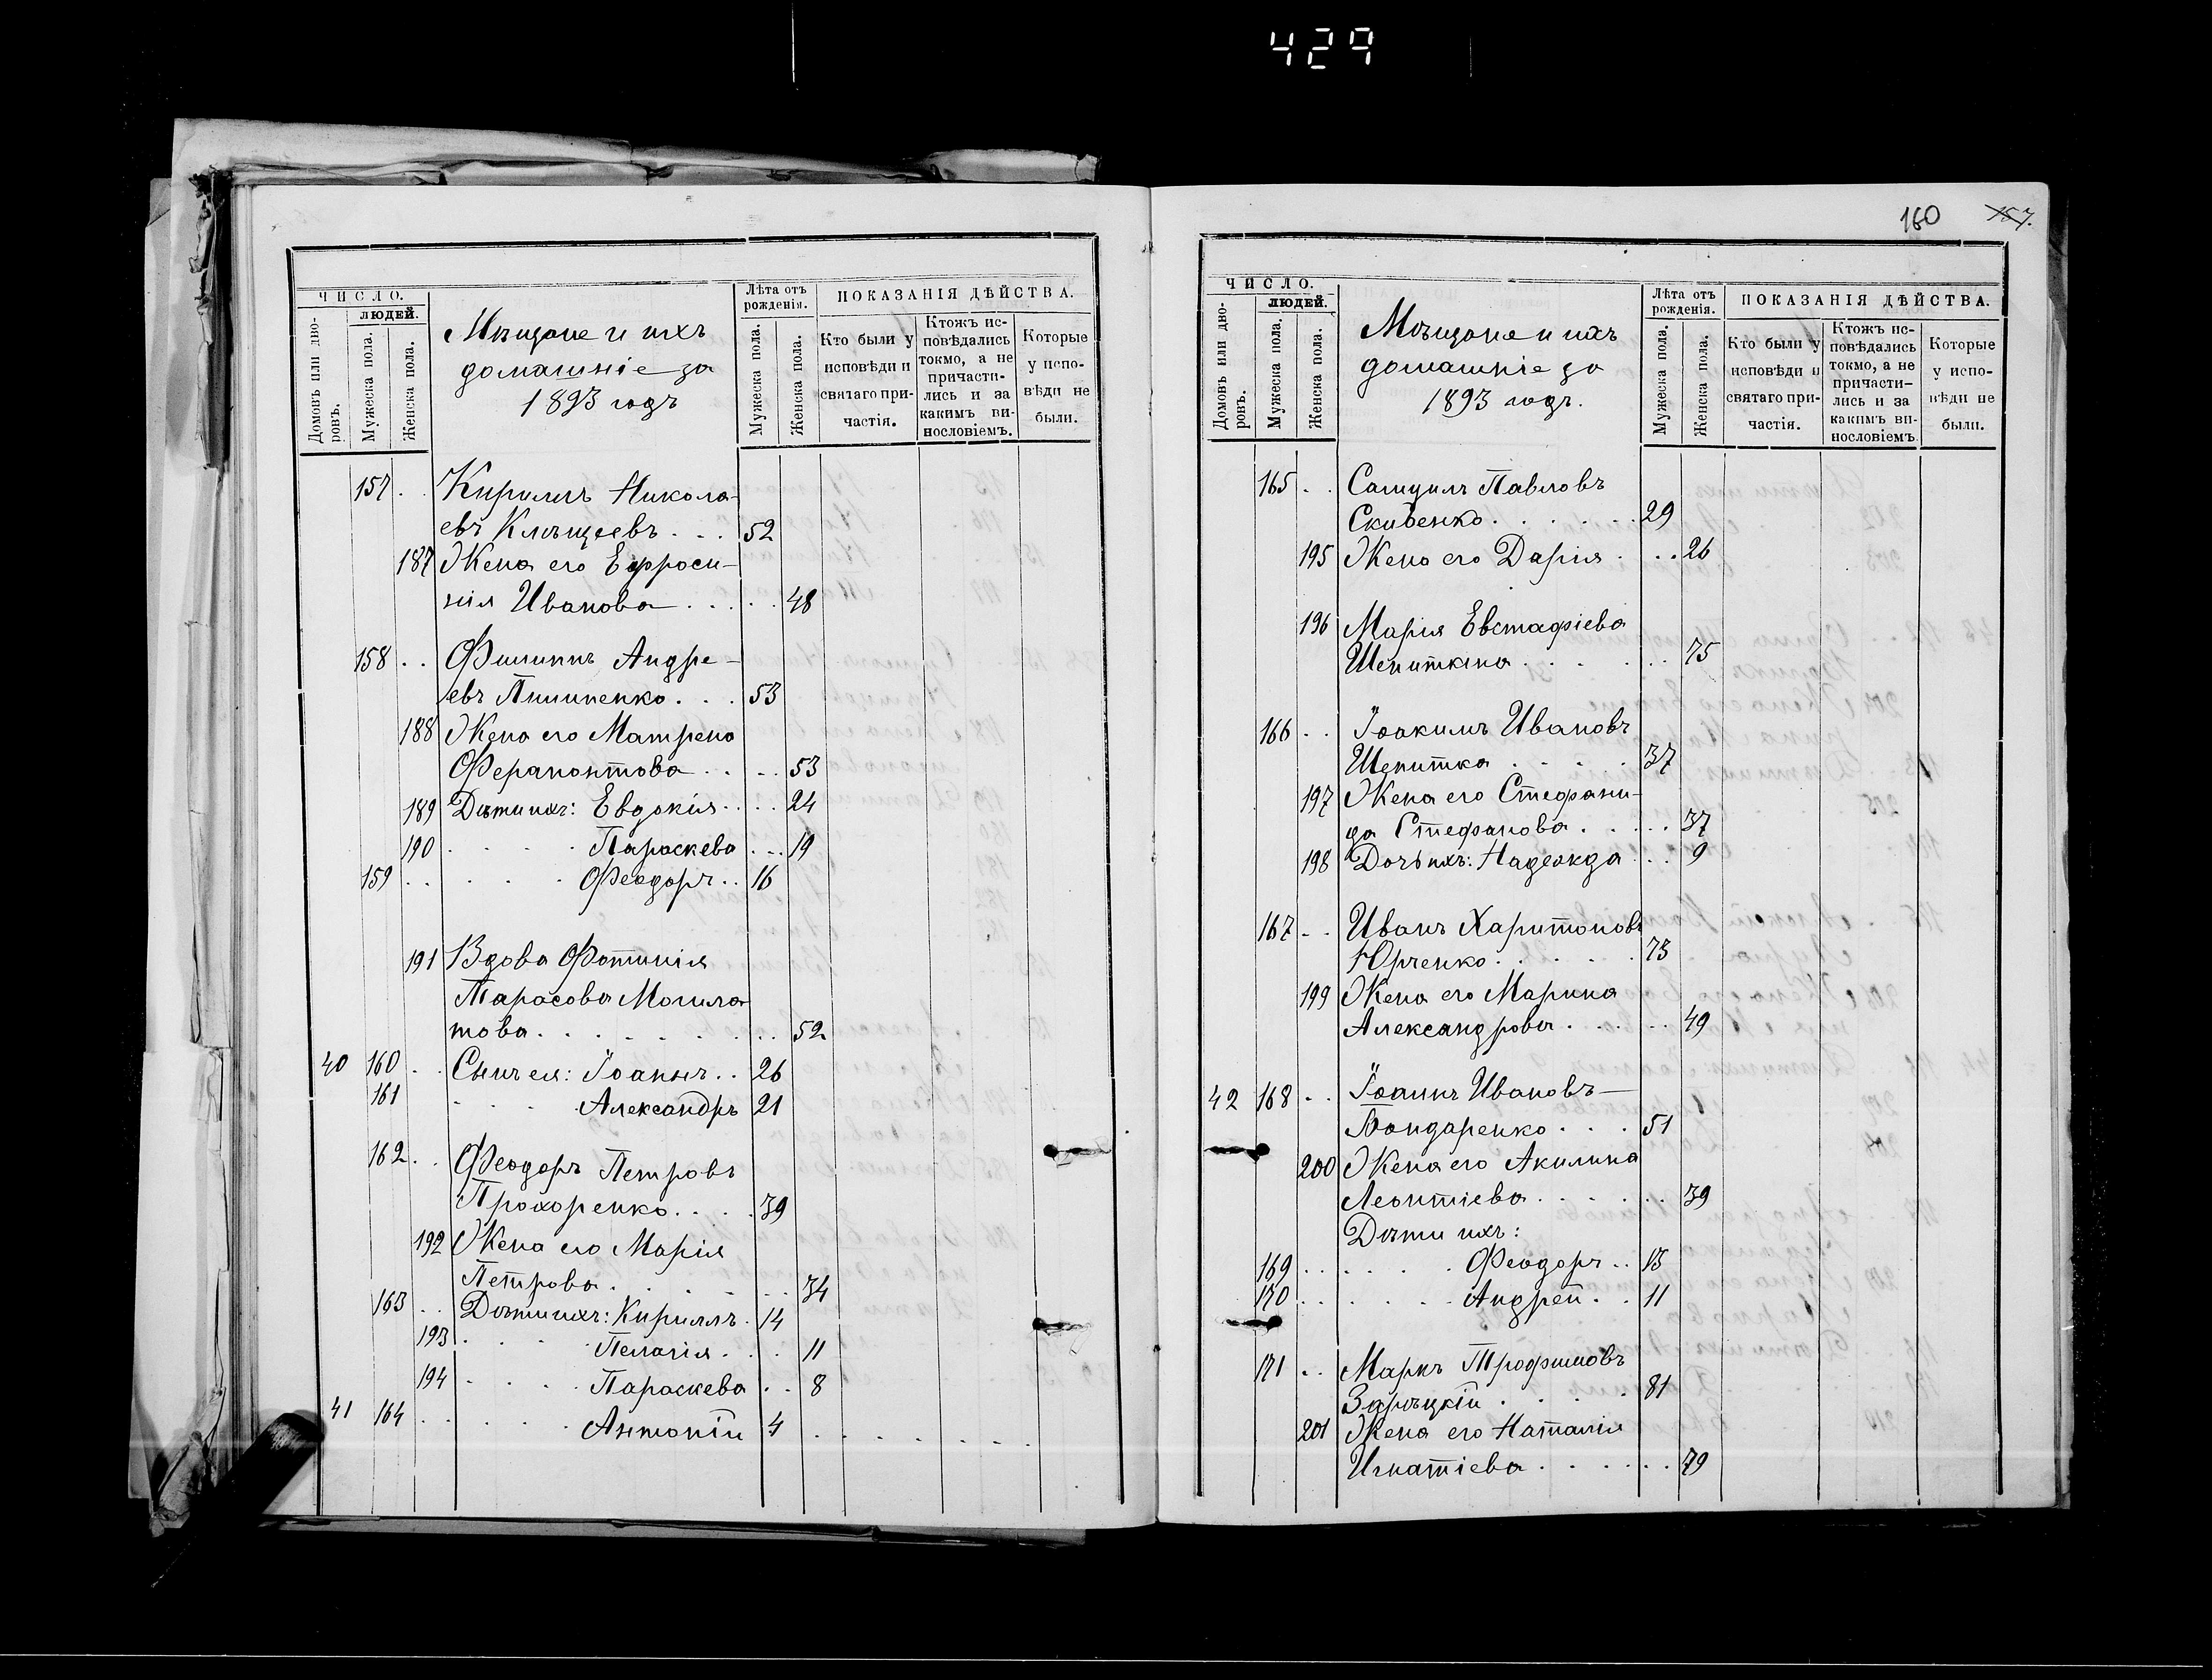 429
160
157.
ЧИСЛО.
Домовъ или дво-
ровъ.
людей.
Мужеска пола.
Женска пола.
Мѣщане и ихъ
домашніе за
1893 годъ
Лѣта отъ
рожденія.
Мужеска пола.
Женска пола.
ПОКАЗАНІЯ ДѢЙСТВА.
Кто были у
исповѣди и
святаго при-
частія.
Ктожъ ис-
повѣдались
токмо, а не
причасти-
лись и за
какимъ ви-
нословіемъ.
Которые
у испо-
вѣди не
были.
157 . . Кириллъ Никола-
евъ Клѣщеевъ . . . 52
187 Жена его Ефроси-
нія Иванова . . . . . 48
158 . . Филиппъ Андре-
евъ Пилипенко . . . 53
188 Жена его Матрена
Ферапонтова . . . . 53
189 Дѣти ихъ: Евдокія . . . . 24
190 . . . . Параскева . . . 19
159 . . . . . . Феодоръ . . 16
191 Вдова Фотинія
Тарасова Могила
това . . . . . . . . . 52
40 160 . . Сынъ ея: Іоаннъ . . 26
161 . . . . Александръ 21
162 . . Феодоръ Петровъ
Прохоренко . . . . 39
192 Жена его Марія
Петрова . . . . . . . 34
163 . . Дѣти ихъ: Кириллъ . 14
193 . . . . Пелагія . . . 11
194 . . . . Параскева . . 8
41 164 . . . . . . Антоній 4 . . . . . . .
ЧИСЛО.
Домовъ или дво-
ровъ.
людей.
Мужеска пола.
Женска пола.
Мѣщане и ихъ
домашніе за
1893 годъ.
Лѣта отъ
рожденія.
Мужеска пола.
Женска пола.
ПОКАЗАНІЯ ДѢЙСТВА.
Кто были у
исповѣди и
святаго при-
частія.
Ктожъ ис-
повѣдались
токмо, а не
причасти-
лись и за
какимъ ви-
нословіемъ
Которые
у испо-
вѣди не
были.
165 . . Самуилъ Павловъ
Скибенко . . . . . . 29
195 Жена его Дарія . . . 26
196 Марія Евстафіева
Шепиткина . . . . . . 75
166 . . Іоакимъ Ивановъ
Шепитка . . . . . 37
197 Жена его Стефани-
да Стефанова . . . . . 37
198 Дочь ихъ: Надежда . . . 9
167 . . Иванъ Харитоновъ
Юрченко . . . . . . 75
199 Жена его Марина
Александрова . . . . . 49
42 168 . . Іоаннъ Ивановъ —
Бондаренко . . . . 51
200 Жена его Акилина
Леонтіева . . . . . . . 39
Дѣти ихъ:
169 . . . . . . Феодоръ . . 15
170 . . . . . . Андрей . . 11
171 . . Маркъ Трофимовъ
Зарѣцкій . . . . . 81
201 Жена его Наталія
Игнатіева . . . . . . . 79